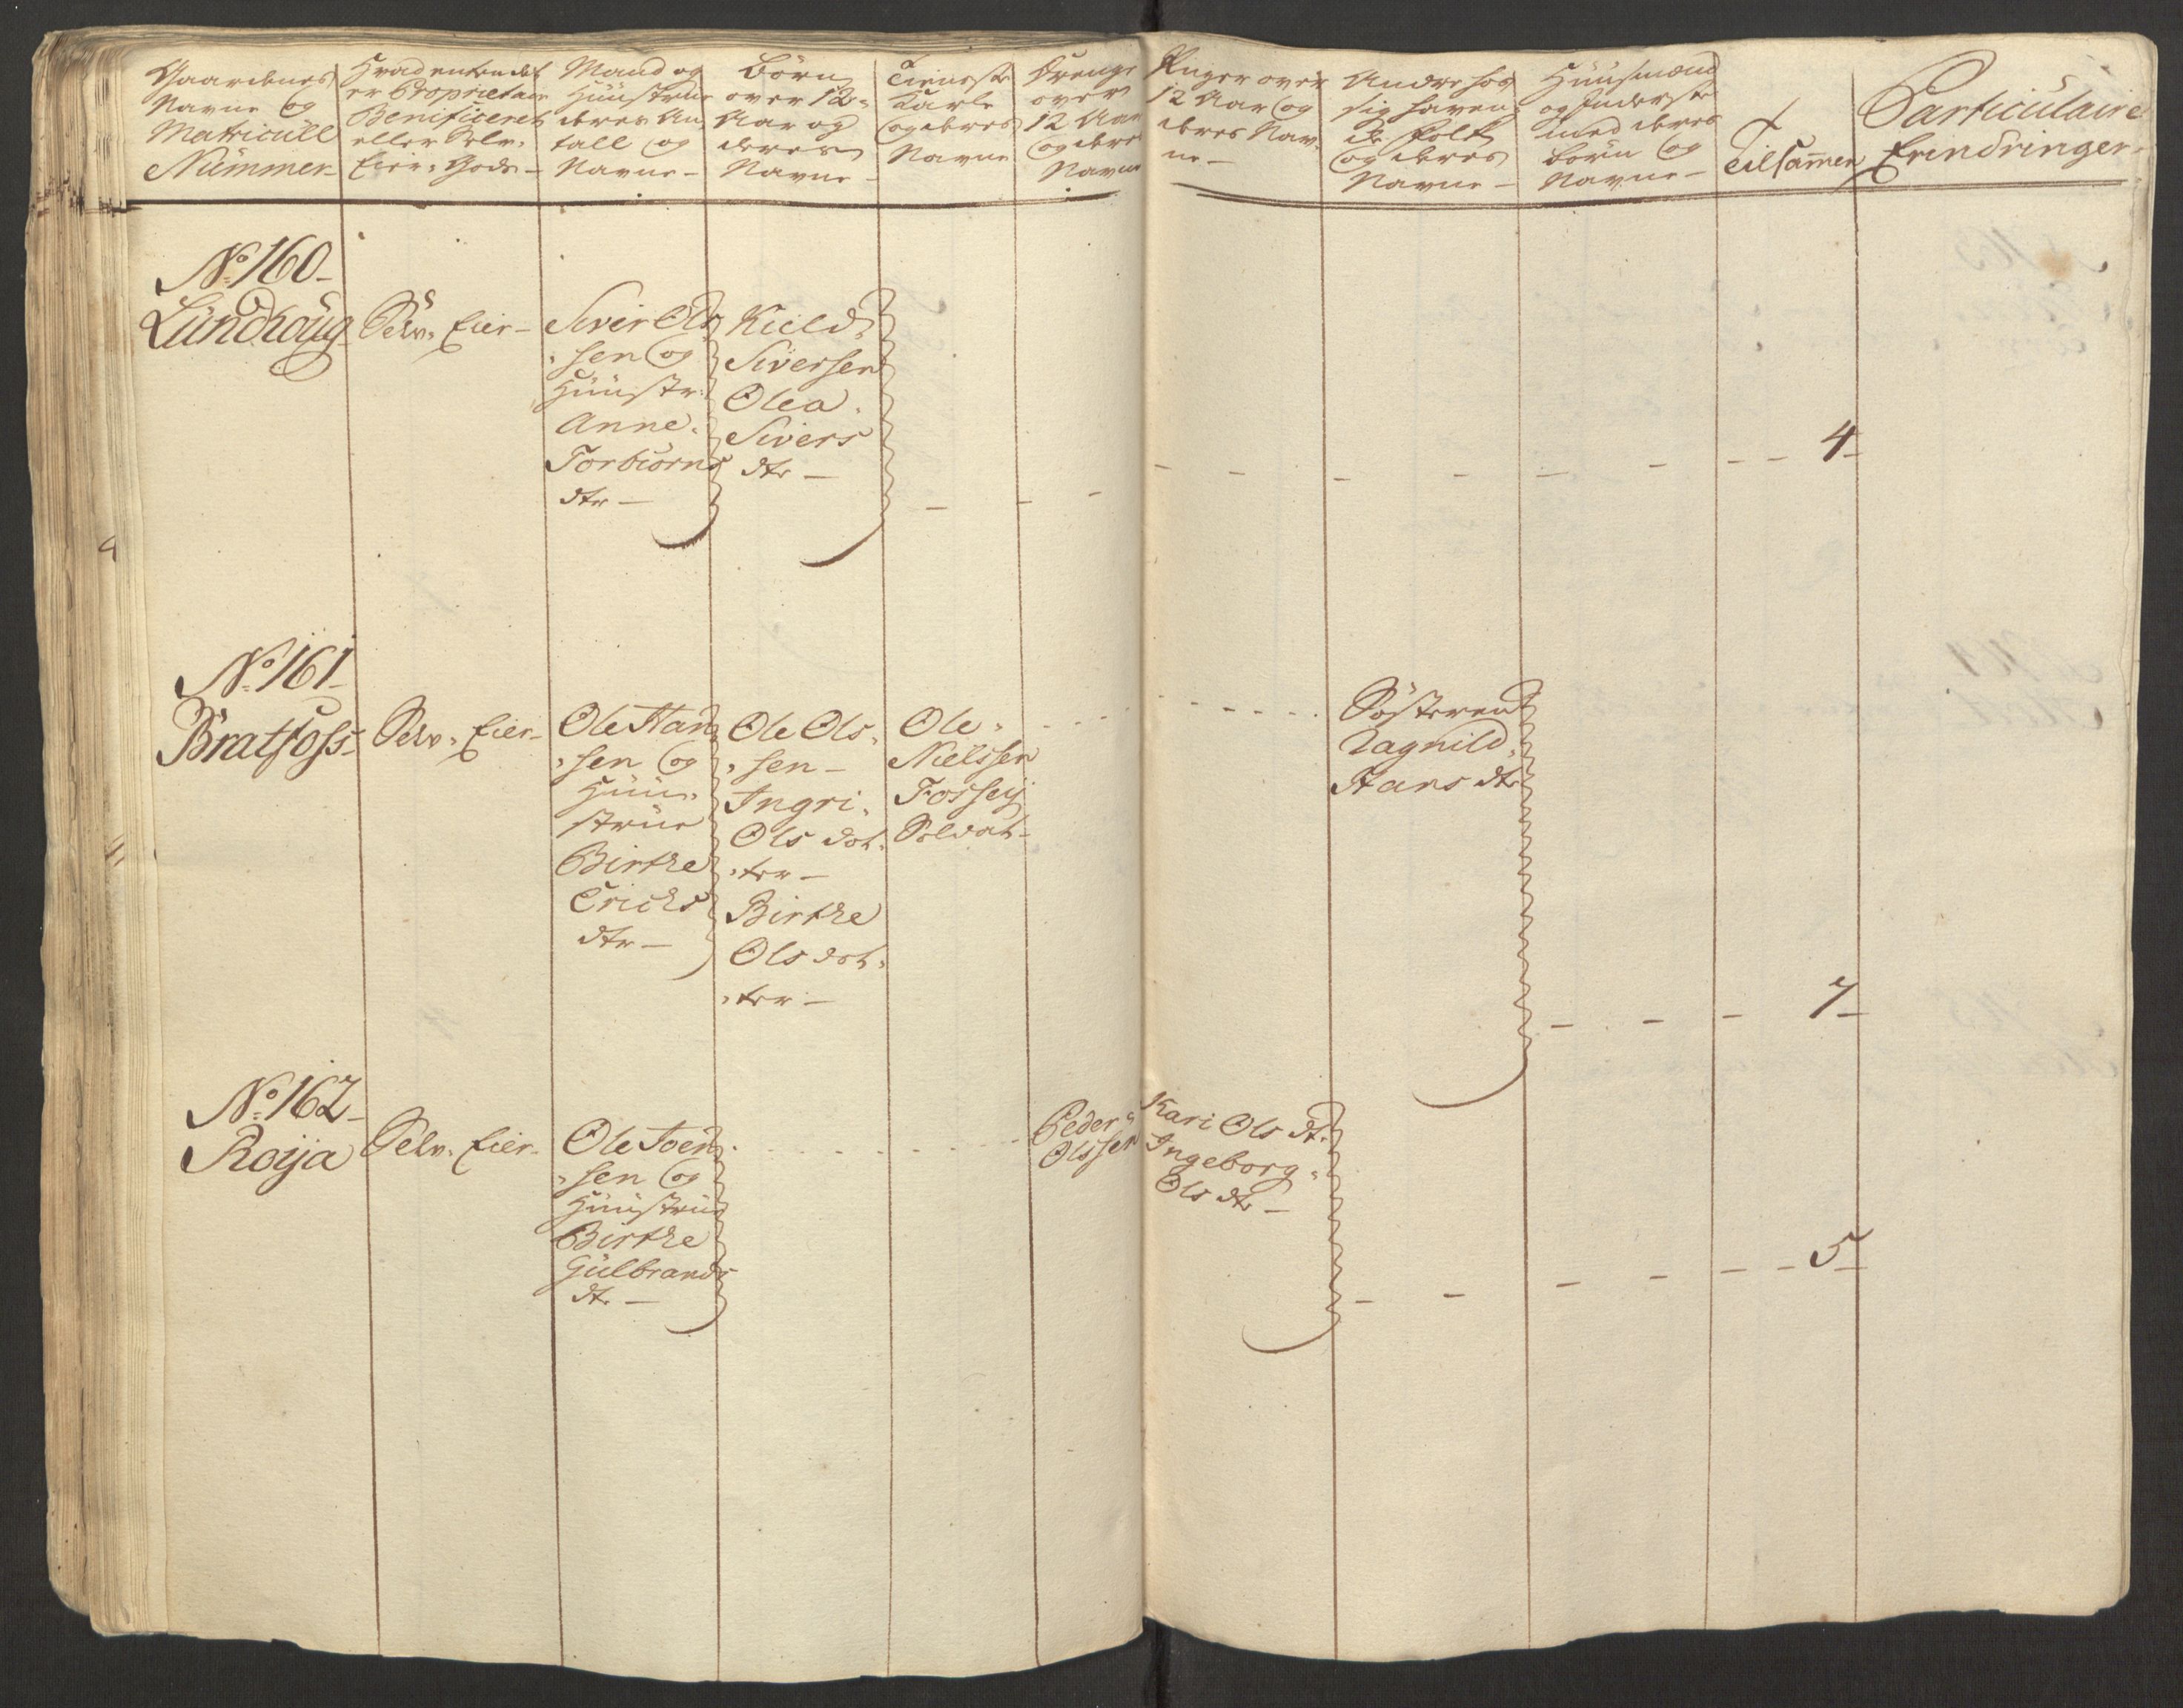 Gaardenes
Navne og
Matricull
Nummer-
Hvad enten det
er Proprietair
Benificeret
eller Selv-
Eier-Gods-
Mand og
Huustrue
deres An-
tall og
Navne-
Börn
over 12-
Aar og
deres
Navne-
Tieneste
Karle
og deres
Navne
Drenge
over
12 Aar
og deres
Navne
Piger over
12 Aar og
deres Nav-
ne-
Andre hos
sig havende
Folk
og deres
Navne-
Huusmænd
og Inderste
med deres
Börn og
Navne-
Tilsam̅en
Particulaire
Erindringer
No 160-
Lundhoug Selv-Eier-
Siver Ols
-sen og
Huustr:
Anne
Torbiörns
dtr-
Kield
Siversen
Olea
Sivers
dtr-
4-
No 161-
Bratfoss- Selv-Eier-
Ole Han
-sen og
Huu-
strue
Birthe
Erichs
dtr-
Ole Ols-
-sen-
Ingri-
Ols dot-
-ter-
Birthe
Ols dot-
-ter-
Ole
Nielssen
Fossey
Soldat-
Sösteren
Ragnild
Hans dtr
7-
No 162-
Roija Selv-Eier-
Ole Joen
-sen og
Huustrue
Birthe
Gulbrands
dtr-
Peder
Olssen
Kari Ols dtr
Ingeborg
Ols dtr-
5-